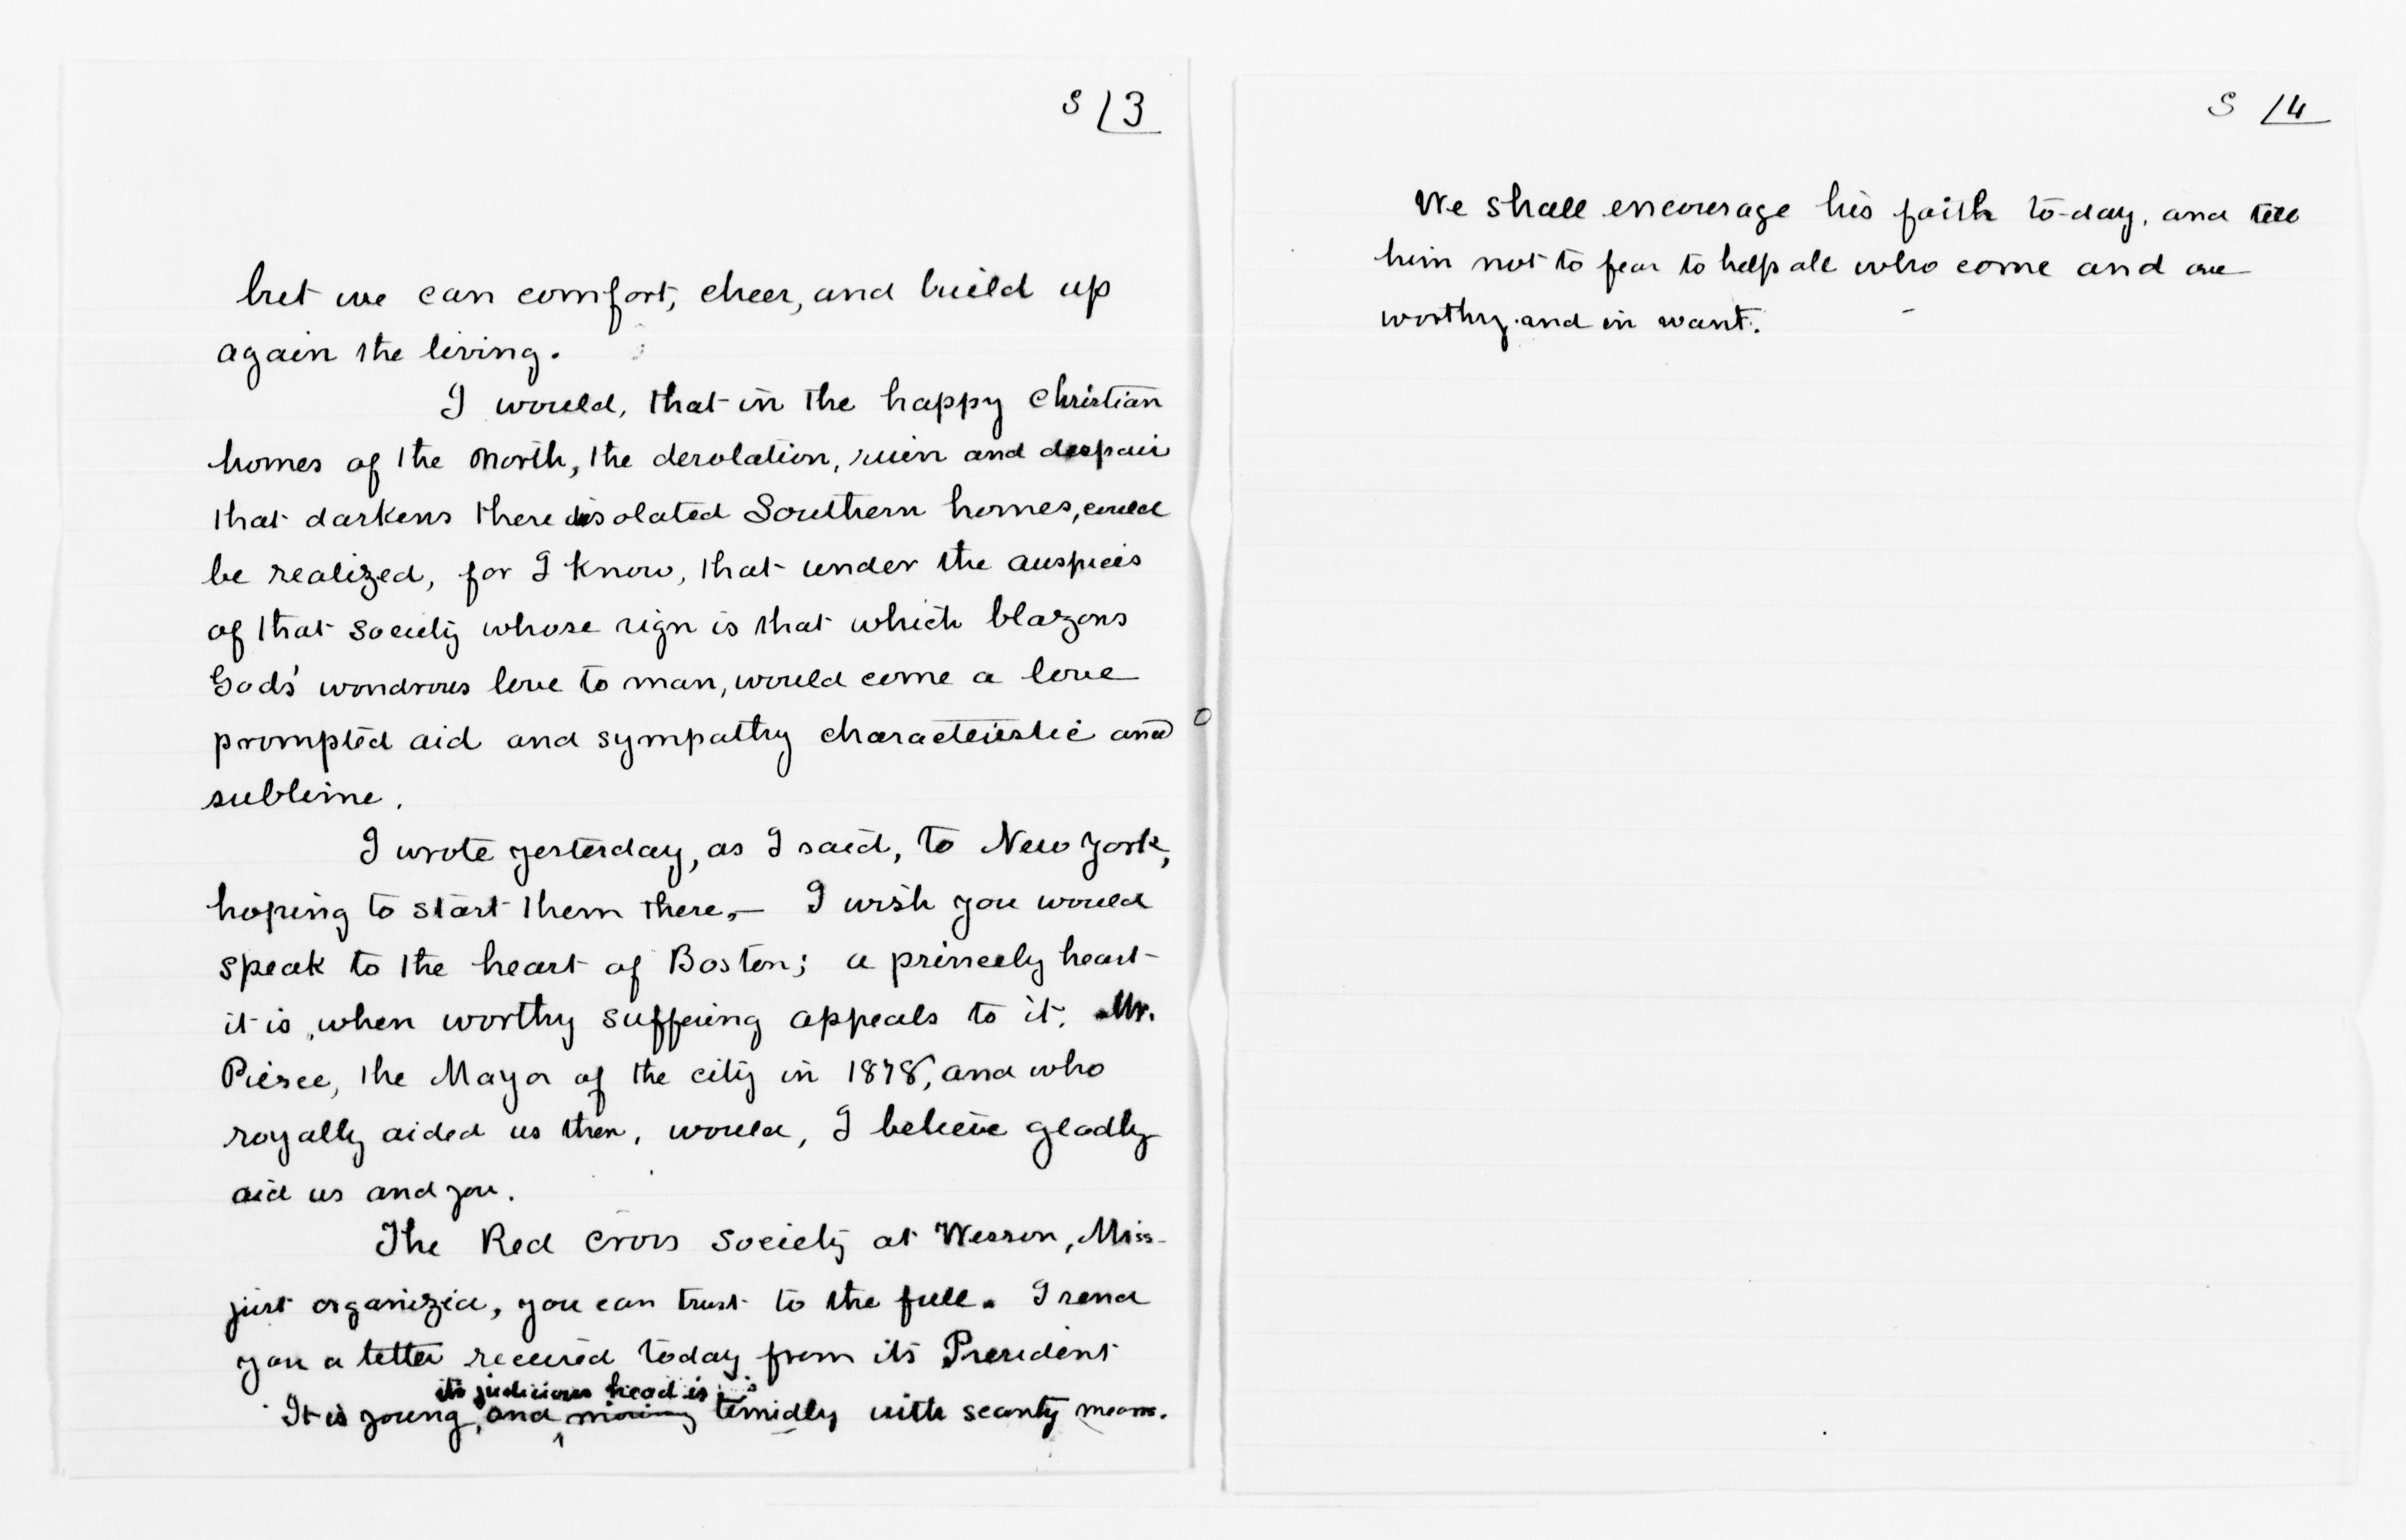 S /3
but we can comfort, cheer, and build up
again the living.
I would, that in the happy Christian
homes of the North, the desolation, ruin and despair
that darkens these desolated Southern homes, could
be realized, for I know, that under the auspices
of that Society whose sign is that which blazons
Gods' wondrous love to man, would come a love
prompted aid and sympathy characteristic and
sublime.
I wrote yesterday, as I said, to New York,
hoping to start them there. — I wish you would
speak to the heart of Boston; a princely heart
it is, when worthy suffering appeals to it. Mr.
Pierce, the Mayor of the city in 1878, and who
royally aided us then, would, I believe gladly
aid us and you.
The Red Cross Society at Wesson, Miss-
just organized, you can trust to the full. I send
you a letter received today from its President
its judicious head is
It is young, and moving timidly with scanty means.
S /4
We shall encourage his faith to-day, and tell
him not to fear to help all who come and are
worthy and in want.